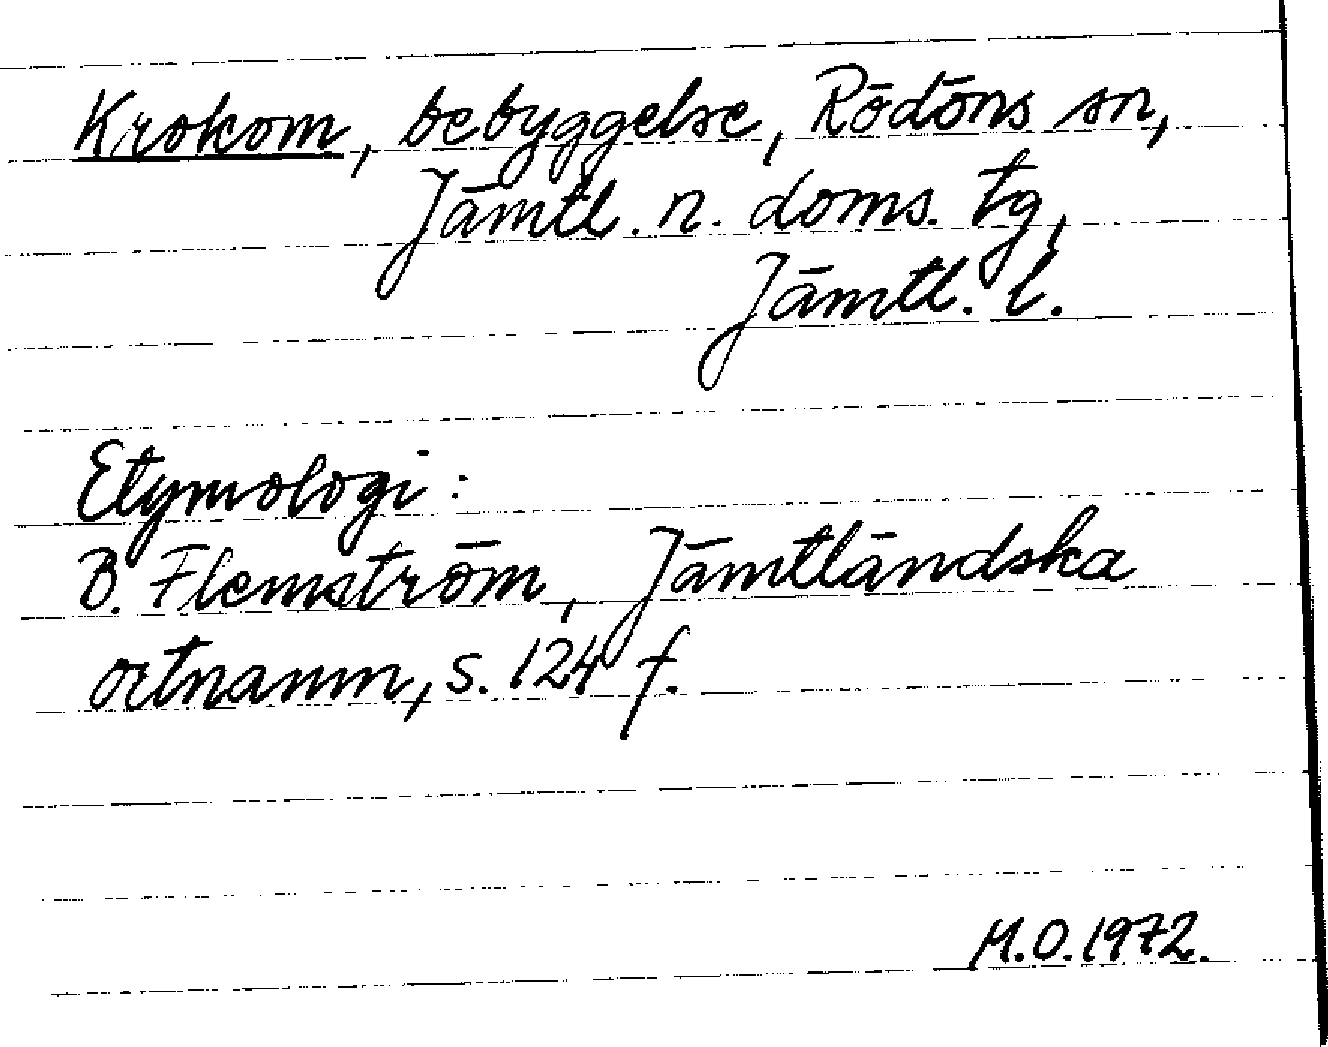 Krokom, bebyggelse, Rödöns sn,
Jämtl. n. doms. tg,
Jämtl. l.
Etymologi:
B. Flemström, Jämtländska
ortnamn, s. 124 f.
M.O. 1972.